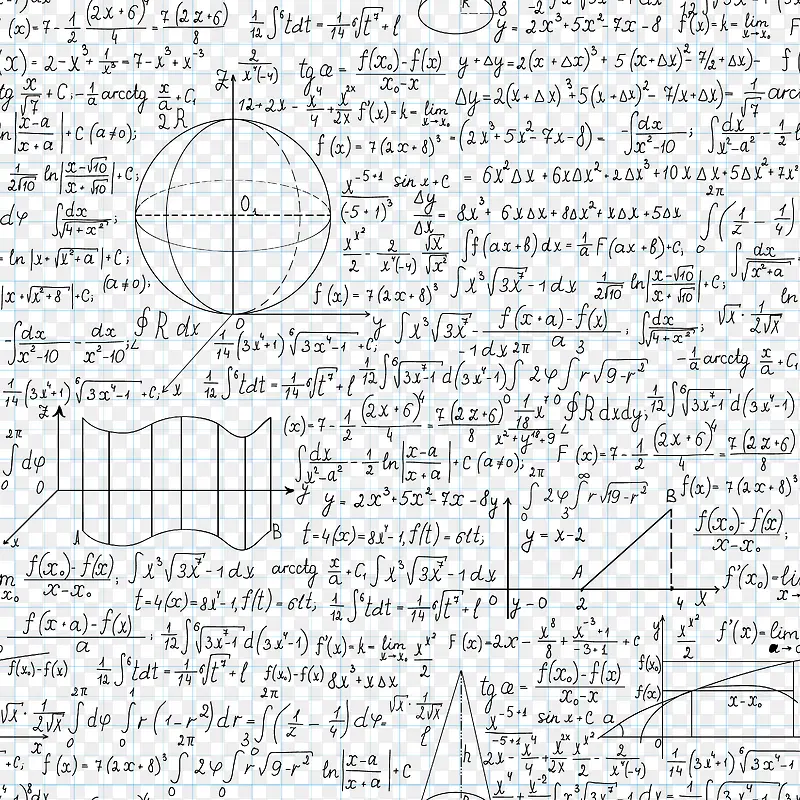 (x) = 7 - 1/2 (2x+6)^4/4 = 7(2x+6)/8
1/12 ∫^6 tdt = 1/14 ^6√t^7 + l
R
8
y = 2x^3+5x^2-7x-8
f'(x)=k= lim x→x₀
(x) = 2-x^3 + 1/x^3 = 7-x^3+x^-3
2/x^4(-4)
z
tg œ = f(x₀)-f(x)/x₀-x
y+Δy=2(x+Δx)^3 + 5(x+Δx)^2-7/2+Δx)-
tg x/√7 + C; -1/a arcctg x/a + C₁
12+2x - x^4/4 + x^2x/2x
f'(x)=k= lim x→x₀
Δy=2(x+Δx)^3+5(x+Δx)^2-7/x+Δx)= 1/√7 arc
ln |x-a/x+a| + C (a≠0);
2R
f(x) = 7(2x+8)^3
=(2x^3+5x^2-7x-8) =
-∫dx/x^2-10 ;
∫dx/x^2-a^2 - 1/2
1/2√10 ln|x-√10/x+√10| + C;
x^-5+1/(-5+1)^3
sin x + C
= 6x^2Δx + 6xΔx^2+2Δx^3+10xΔx+5Δx^2+7x^2
O₁
Δy/Δx = 8x^3+ 6xΔx+8Δx^2+xΔx+5Δx
2π
∫(1/z - 1/4)
0
dφ
∫dx/√4+x^2 ;
= ln |x+√x^2+a| + C;
x^x^2/2 - 2/x^4(-4) √x/√x^2
∫f(ax+b)dx = 1/a F(ax+b)+C,
∫dx/√x^2+a
|x+√x^2+8| +C;
(a≠0);
f(x) = 7(2x+8)^3
∫x^3√3x^7-1dx
1/2√10 ln|x-√10/x+√10| + C;
-∫dx/x^2-10 - dx/x^2-10;
∮R dx
0
y
∫x^3√3x^7 - f(x+a)-f(x)/a ;
∫dx/√4+x^2 ;
√x · 1/2√x
1/14 (3x^4+1) ^6√3x^4-1 + C;
-1dx
2π
3
-1/a arcctg x/a + C₁
1/14 (3x^4+1) ^6√3x^4-1 + C;
x
1/12 ∫^6 tdt = 1/14 ^6√t^7 + l
1/12 ∫^6√3x^7-1 d(3x^4-1)
∫2φ∫r√9-r^2
z
(x)=7-1/2 (2x+6)^4/4 = 7(2x+6)/8
1/18 x^7
∮Rdxdy;
1/12 ∫^6√3x^7-1 d(3x^4-1)
x^2+y^2+9
2π
∫dφ
0
0
∫dx/x^2-a^2 - 1/2 ln|x-a/x+a| + C (a≠0);
F (x)=7-1/2 (2x+6)^4/4 = 7(2x+6)/8
y
y = 2x^3+5x^2-7x-8
y
2π
∫2φ∫r√9-r^2
0
3
B
f(x)= 7(2x+8)^3
x
A
B
t=4(x)=8x^4-1, f(t) = 6lt;
y = x-2
f(x₀)-f(x)/x-x₀ ;
f(x₀)-f(x)/x-x₀ ;
∫x^3√3x^7-1dx
arcctg x/a + C₁
∫x^3√3x^7-1dx
A
f'(x₀)=lim
t=4(x)=8x^4-1, f(t) = 6lt;
1/12 ∫^6 tdt = 1/14 ^6√t^7 + l
0
y-0
2
4
x
f(x+a)-f(x)/a ;
1/12 ∫^6√3x^7-1 d(3x^4-1)
f'(x)=k= lim x→x₀
x^x^2/2
F(x)=2x - x^8/8 + x^-3+1/-3+1 + C
y
x^x^2/2
f'(x)= lim
f(x₀)-f(x)
1/12 ∫^6 tdt = 1/14 ^6√t^7 + l
f(x₀)-f(x)
8x^3+xΔx
tg œ = f(x₀)-f(x)/x₀-x
f(x₀)
f(x)
x-x₀
√x · 1/2√x
x
2π
∫dφ
0
1
∫r(1-r^2)dr=
0
2π
∫(1/z - 1/4)dφ=
0
√x · 1/2√x
x^-5+1/-5+1
sin x + C
a
0
+C;
f(x) = 7(2x+8)^3
2π
∫2φ∫r√9-r^2
0
3
0
ln|x-a/x+a| + C
l
h
2x - x^4/4 + x^2x/2x - 2/x^4(-4)
1/14 (3x^4+1) ^6√3x^4-1